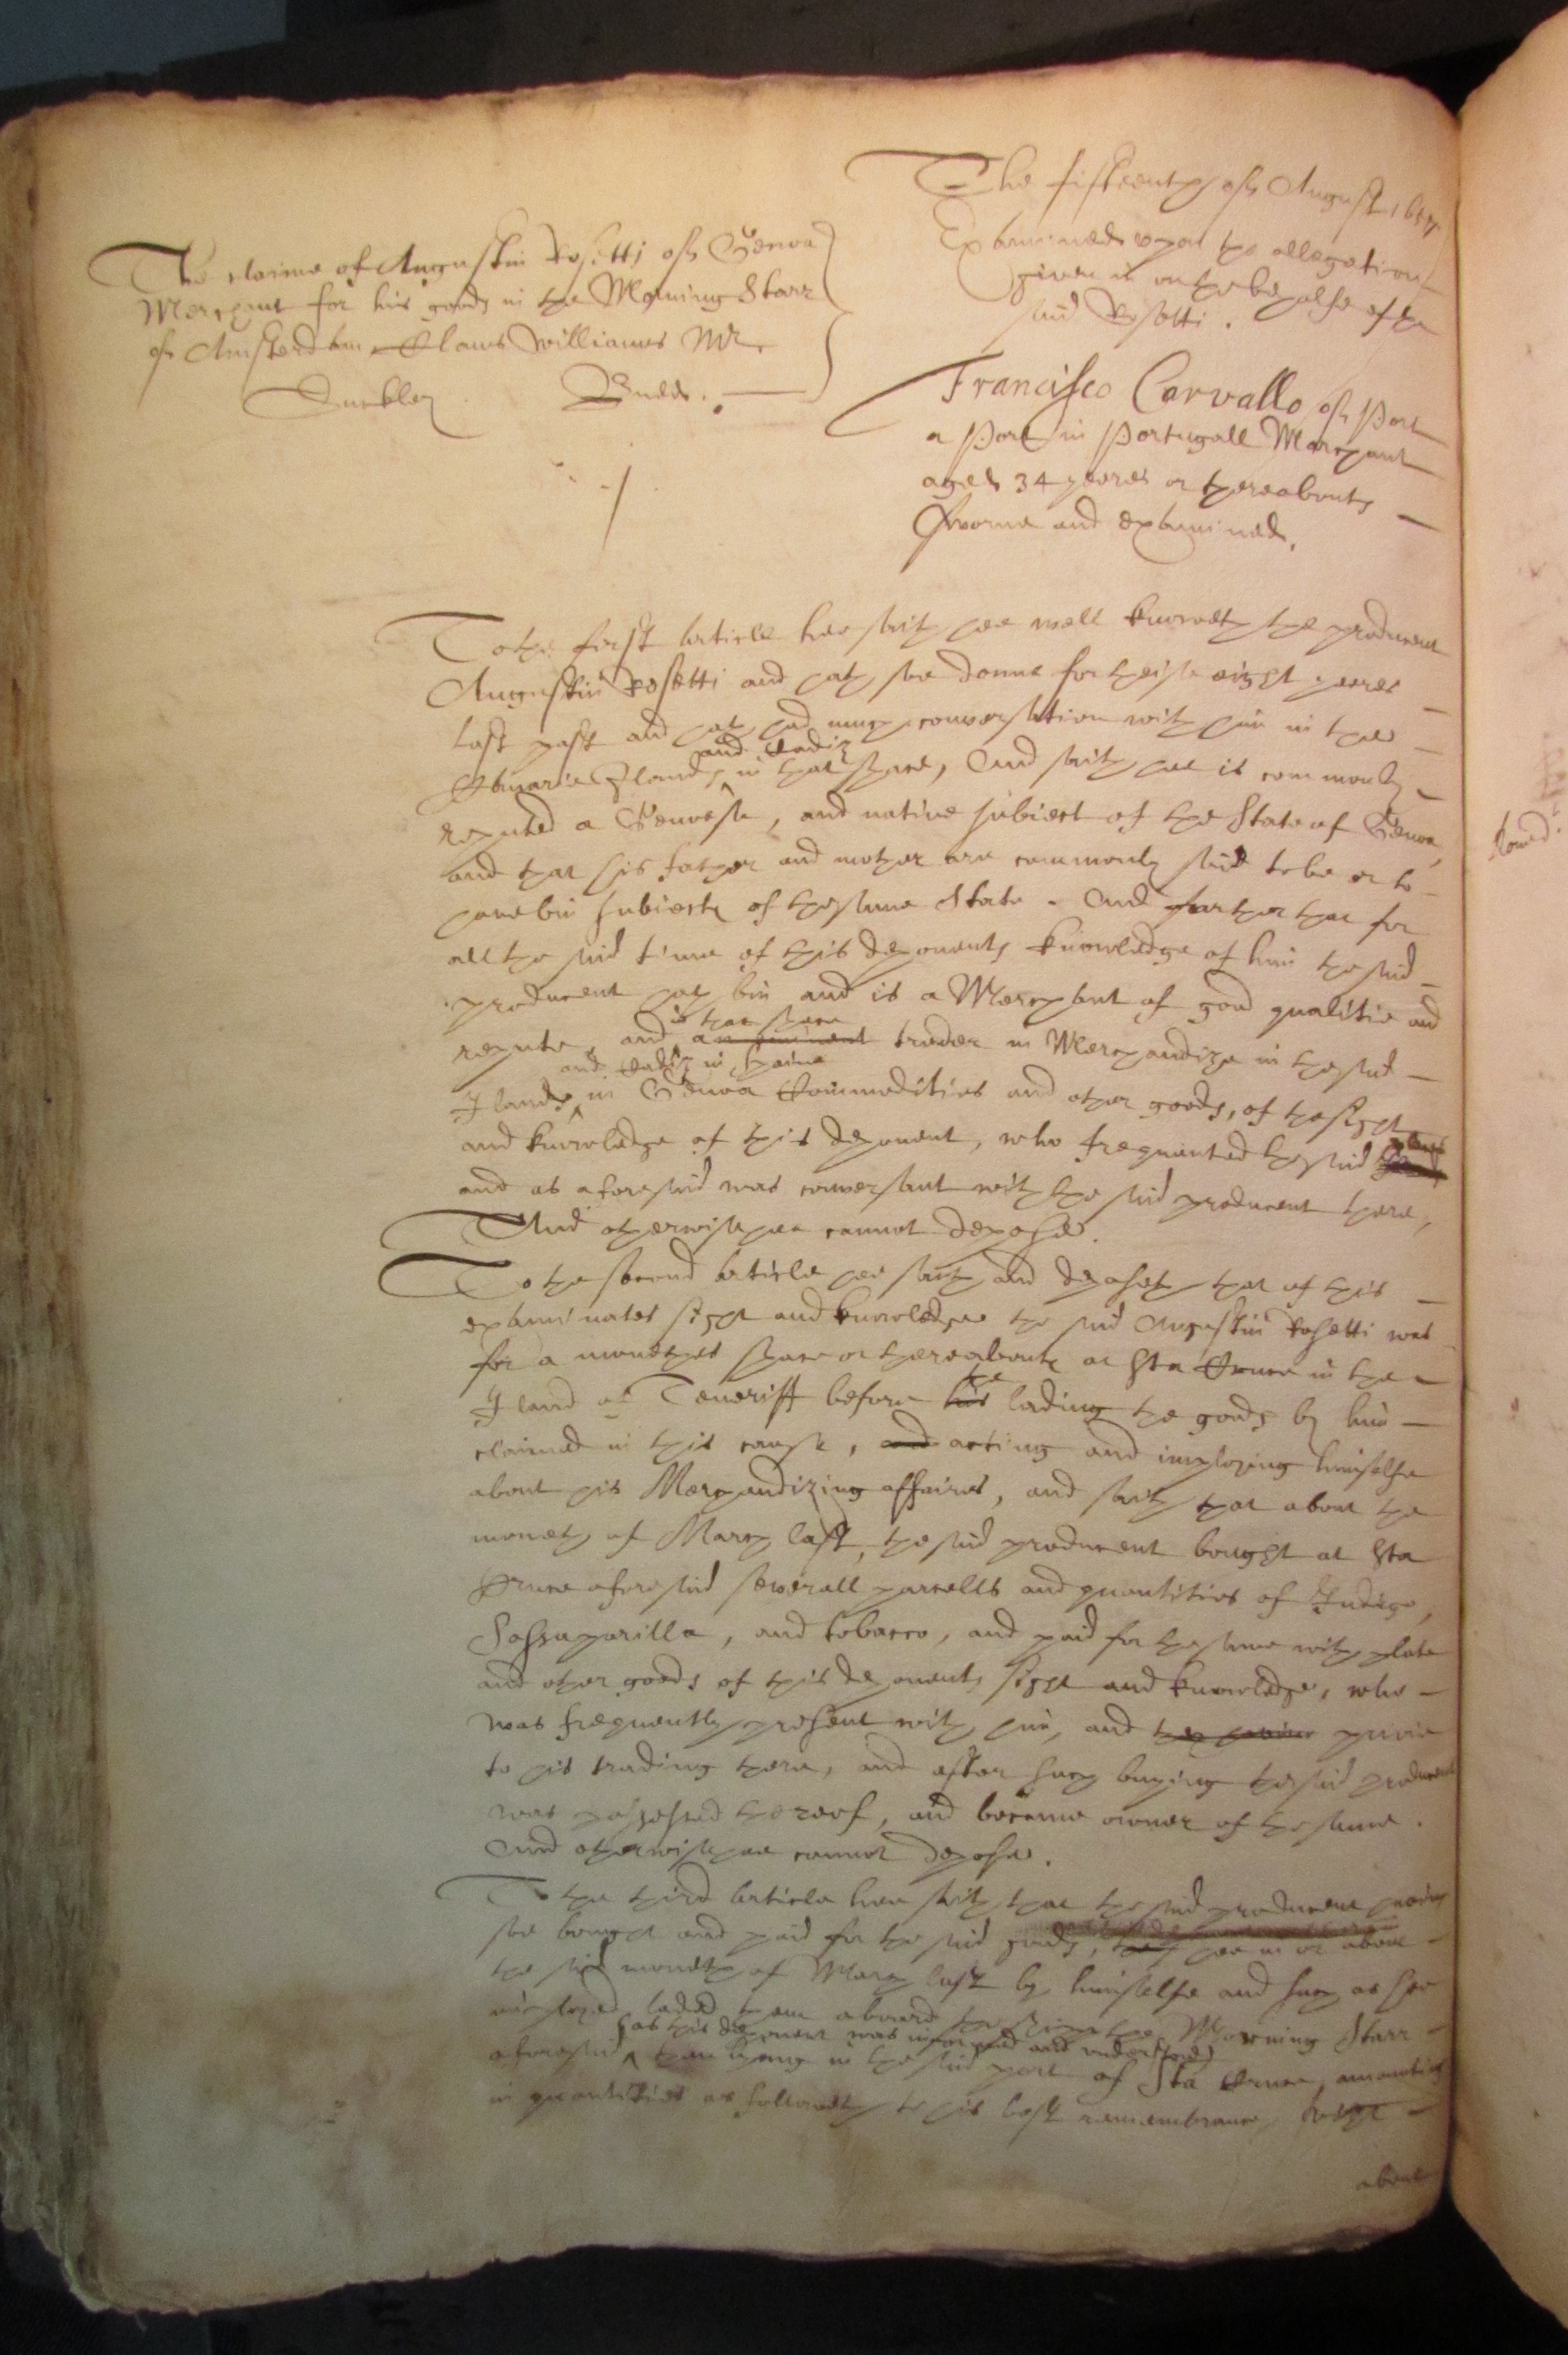 The fifteenth of August 1657
Examined upon the allegation
given in on the behalfe of the
said Rosetti.
The claime of Augustin Rosetti of Genoa
Merchant for his goods in the Morning Starr
of Amsterdam Claus Williams Mr.
Suckley Budd.
Francisco Carvallo of Port
a Port in Portugall Merchant
aged 34 yeeres or thereabouts
Sworne and examined.
To the first article hee saith hee well knoweth the producent
Augustin Rosetti and hath soe donne for theise eight yeeres
last past and hath had much conversation with him in the
and Cadiz
Canarie Islands in that space, And saith hee is commonly
reputed a Genoese, and native subiect of the State of Genoa,
and that his father and mother are commonly said to be or to
have bin subiects of the same State. And further that for
all the said time of this deponents knowledge of him the said
producent hath bin and is a Merchant of good qualitie and
in that space
repute, and an eminent trader in Merchandize in the said
and Cadiz in Spaine
Islands in Genoa Commodities and other goods, of the sight
and knowledge of this deponent, who frequented the said places
and as aforesaid was conversant with the said producent there,
And otherwise hee cannot depose.
To the second article hee saith and deposeth that of this
examinates sight and knowledge the said Augustin Rosetti was
for a moneths space or thereabouts at Sta Cruce in the
the
Island of Teneriff before his lading the goods by him
claimed in this cause, and acting and imploying himselfe
about his Merchandizing affaires, and saith that about the
moneth of March last, the said producent bought at Sta
Cruce aforesaid severall parcells and quantities of Indigo,
Sassaparilla, and tobacco, and paid for the same with plate
and other goods of this deponents sight and knowledge, who
was frequently present with him, and privie
to his trading there, and after such buying the said producent
was possessed thereof, and became owner of the same.
And otherwise hee cannot depose.
To the third article hee saith that the said producent having
soe bought and paid for the said goods, hee in or about
the said moneth of March last by himselfe and such as hee
imployed laded them aboard the shipp the Morning Starr
(as this deponent was informed and understood)
aforesaid then lying in the said port of Sta Cruce, amounting
in quantities as followeth to his best remembrance,
about